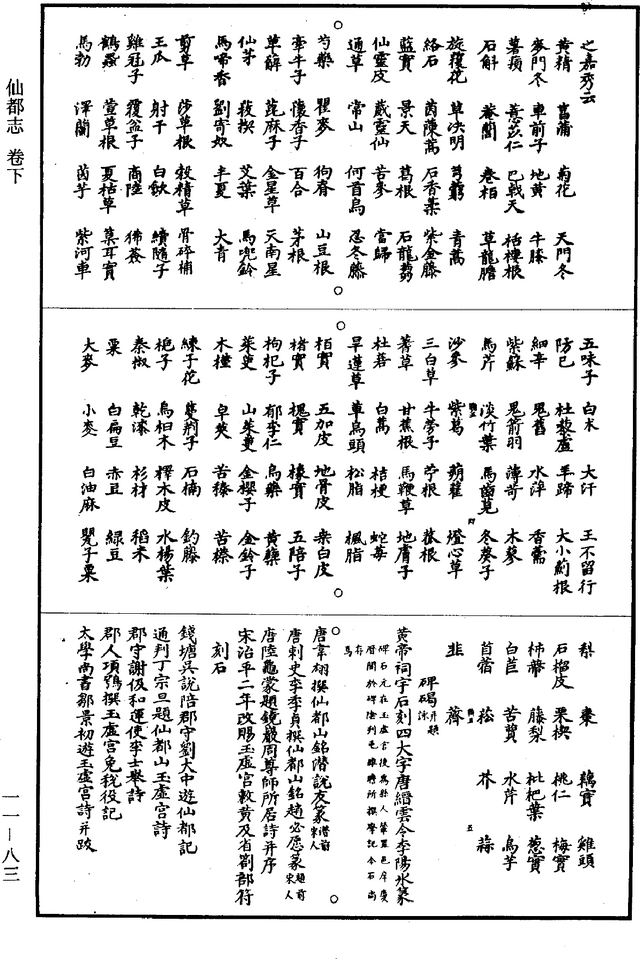 仙都志 卷下
之嘉秀云
黃精 菖蒲 菊花 天門冬
麥門冬 車前子 地黃 牛膝
薯蕷 薏苡仁 巴戟天 栝樓根
石斛 菴䕡 卷柏 草龍膽
旋覆花 草決明 芎藭 青蒿
絡石 茵陳蒿 石香葇 紫金藤
藍實 景天 葛根 石龍芻
仙靈皮 葳靈仙 苦參 當歸
通草 常山 何首烏 忍冬藤
芍藥 瞿麥 狗脊 山豆根
牽牛子 懷香子 百合 茅根
萆薢 萞麻子 金星草 天南星
仙茅 菝楔 艾葉 馬兜鈴
馬啼香 劉寄奴 半夏 大青
剪草 莎草根 穀精草 骨碎補
王瓜 射干 白歛 續隨子
雞冠子 覆盆子 商陸 狶薟
鶴蝨 萱草根 夏枯草 葈耳實
馬勃 澤蘭 茵芋 紫河車
五味子 白朮 大汗 王不留行
防已 杜藜盧 羊蹄 大小薊根
細辛 鬼舊 水萍 香薷
紫蘇 鬼箭羽 薄苛 木蓼
馬芹 淡竹葉 馬齒莧 冬葵子
沙參 紫葛 葫蘿 燈心草
三白草 牛蒡子 苧根 菰根
菁草 甘蕉根 馬鞭草 地膚子
杜若 白蒿 桔梗 蛇莓
旱蓮草 草烏頭 松脂 楓脂
栢實 五加皮 地骨皮 桒白皮
楮實 槐實 椽實 五陪子
枸杞子 郁李仁 烏藥 黃蘗
茱萸 山茱萸 金櫻子 金鈴子
木槿 皁莢 苦㯃 苦櫟
楝子花 蔓荊子 石楠 釣藤
梔子 烏桕木 檡木皮 水楊葉
秦椒 乾漆 杉材 稻米
粟 白扁豆 赤豆 綠豆
大麥 小麥 白油麻 甖子粟
梨 棗 藕實 雞頭
石榴皮 栗楔 桃仁 梅實
柿蔕 藤梨 枇杷葉 葱實
白苣 苦蕒 水芹 烏芋
苜蓿 菘 芥 蒜
韭 薺
碑碣 并題詠
黃帝祠宇石刻四大字唐縉雲令李陽氷篆
唐韋栩撰仙都山銘潛說友篆
唐刺史李季貞撰仙都山銘趙必愿篆
唐陸龜蒙題鏡巖周尊師所居詩并序
宋治平二年改賜玉虛宮敕黃及省劄部符
刻石
錢塘吳說陪郡守劉大中遊仙都記
通判丁宗旦題仙都山玉虛宮詩
郡守謝伋和運使李士舉詩
郡人項鴞撰玉虛宮免稅役記
太學南書鄒景初遊玉虛宮詩并跋
一一—八三